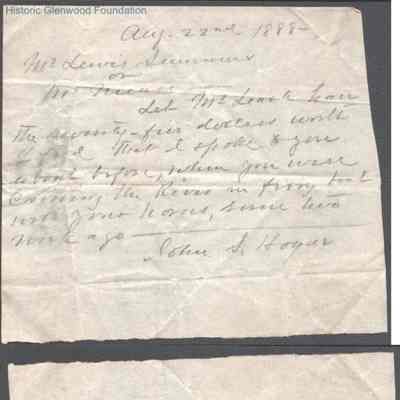 Historic Glenwood Foundation
Aug. 22nd 1888-
Mr Lewis Summers
or
Mr
Let Mr have
the seventy-five dollars worth
of that I spoke to you
about before, when you were
crossing the River in ferry boat
with your horses, some two
week ago
John S. Hogar